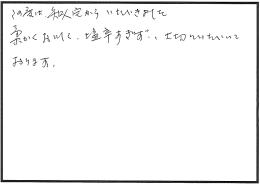 この度は 知人宅から いただきました
柔かくおいしく、塩辛すぎず、大切にいただいて
おります。